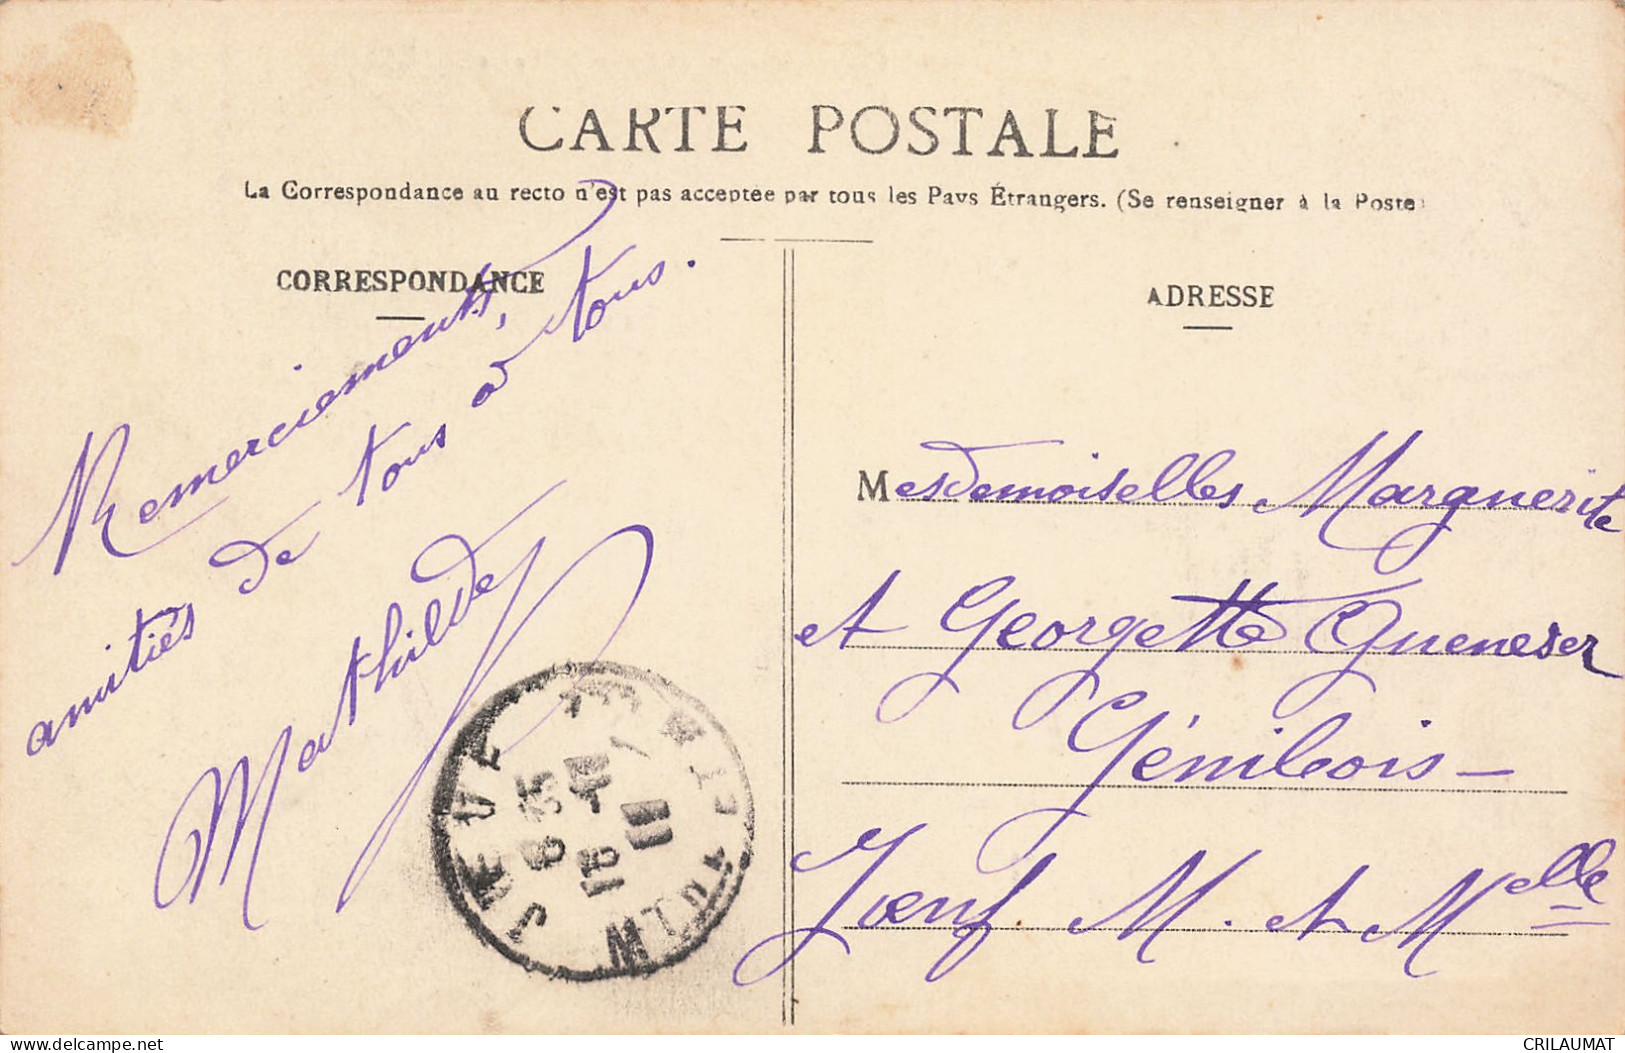 CARTE POSTALE
La Correspondance au recto n'est pas acceptée par tous les Pays Étrangers. (Se renseigner à la Poste)
CORRESPONDANCE
Remerciements,
amitiés de tous à tous.
Mathilde
ADRESSE
Mesdemoiselles Marguerite
et Georgette Gueneser
Génibois -
Jœuf M. et Melle
delcampe.net
CRILAUMAT